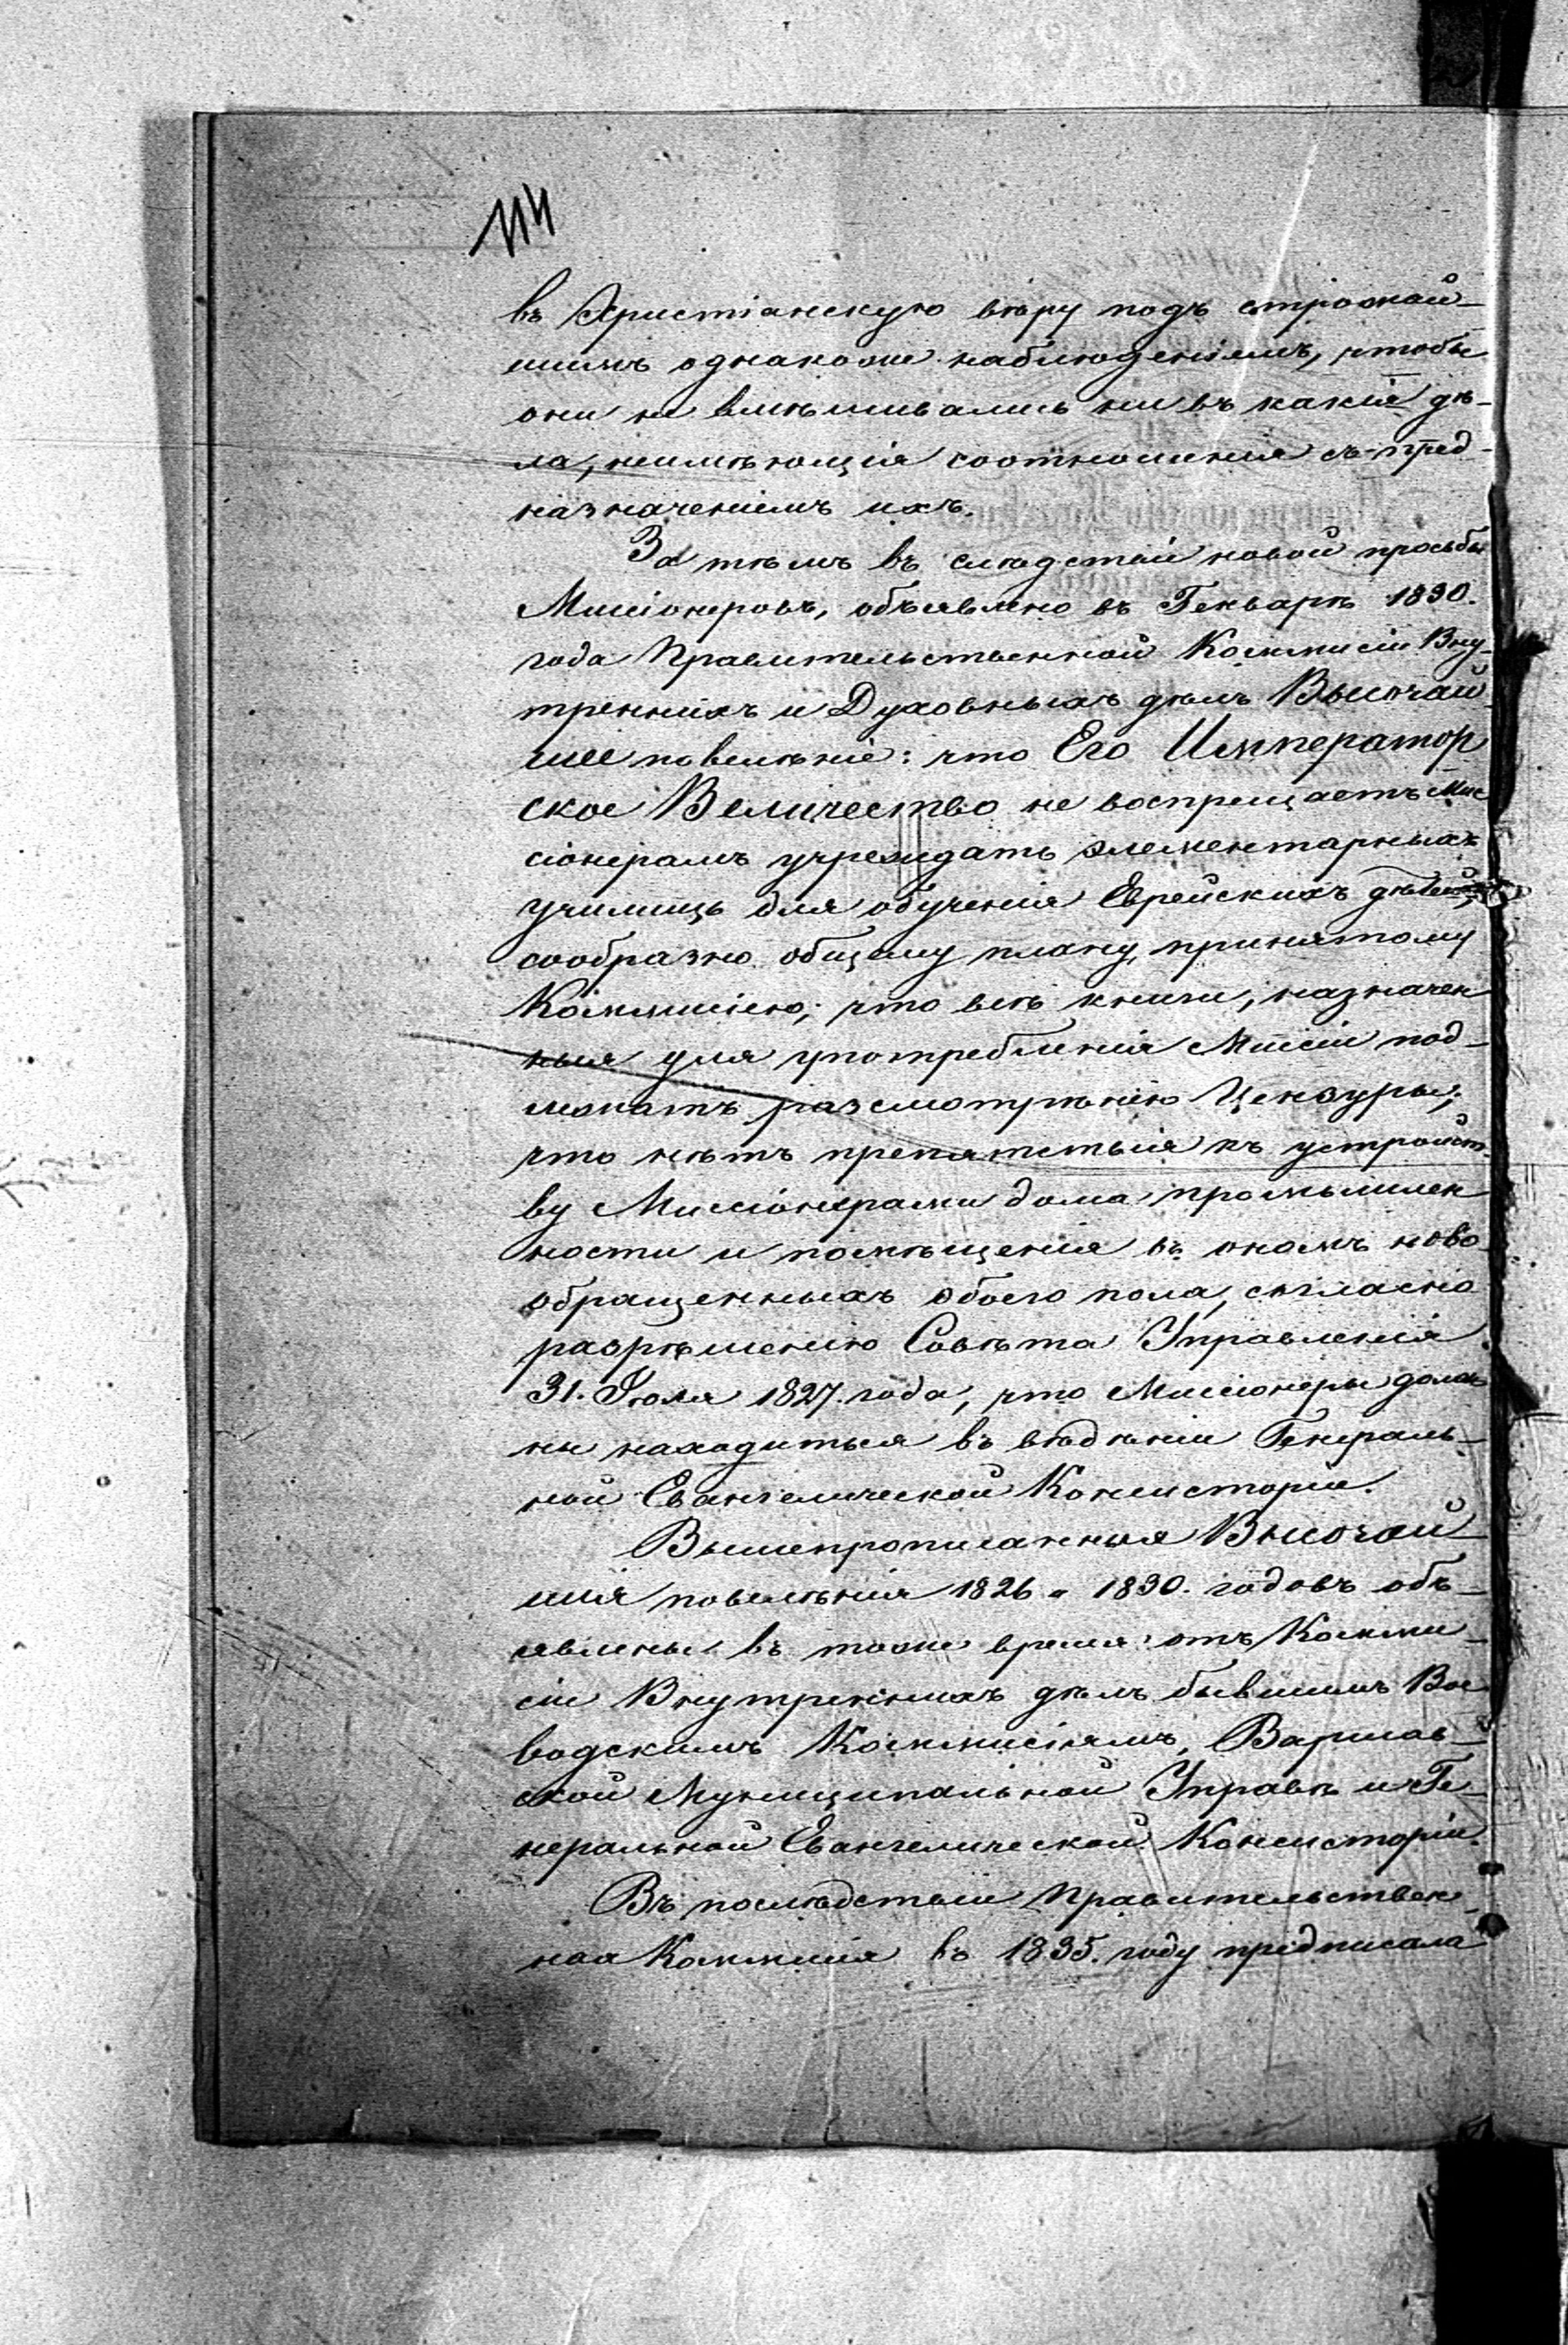 114
въ Христіанскую вѣру подъ строжай-
шимъ однакоже наблюденіемъ, чтобы
они не вмѣшивались ни въ какія дѣ-
ла, неимѣющія соотношенія съ пред-
назначеніемъ ихъ.
За тѣмъ въ слѣдствіи новой просьбы
Миссіонеровъ, объявлено въ Генварѣ 1830.
года Правительственной Коммисіи Вну-
треннихъ и Духовныхъ дѣлъ Высочай-
шее повелѣніе: что Его Император
ское Величество не воспрещаетъ Мис
сіонерамъ учреждать элементарныхъ
училищъ для обученія Еврейскихъ дѣтей,
сообразно общему плану, принятому
Коммисіею; что всѣ книги, назначен
ныя для употребленія Миссіи под-
лежатъ разсмотрѣнію Цензуры;
что нѣтъ препятствія къ устройст-
ву Миссіонерами дома промышлен
ности и помѣщенія въ ономъ ново-
обращенныхъ обоего пола, согласно
разрѣшенію Совѣта Управленія
31. Іюля 1827. года, что Миссіонеры долж
ны находиться въ вѣдѣніи Генераль-
ной Евангелической Консисторіи.
Вышепрописанныя Высочай-
шія повелѣнія 1826 и 1830. годовъ объ-
явлены въ тоже время отъ Комми-
сіи Внутреннихъ дѣлъ бывшимъ Вое-
водскимъ Коммисіямъ, Варшав-
ской Муниципальной Управѣ и Ге-
неральной Евангелической Консисторіи.
Въ послѣдствіи Правительствен-
ная Коммисія въ 1835. году предписала